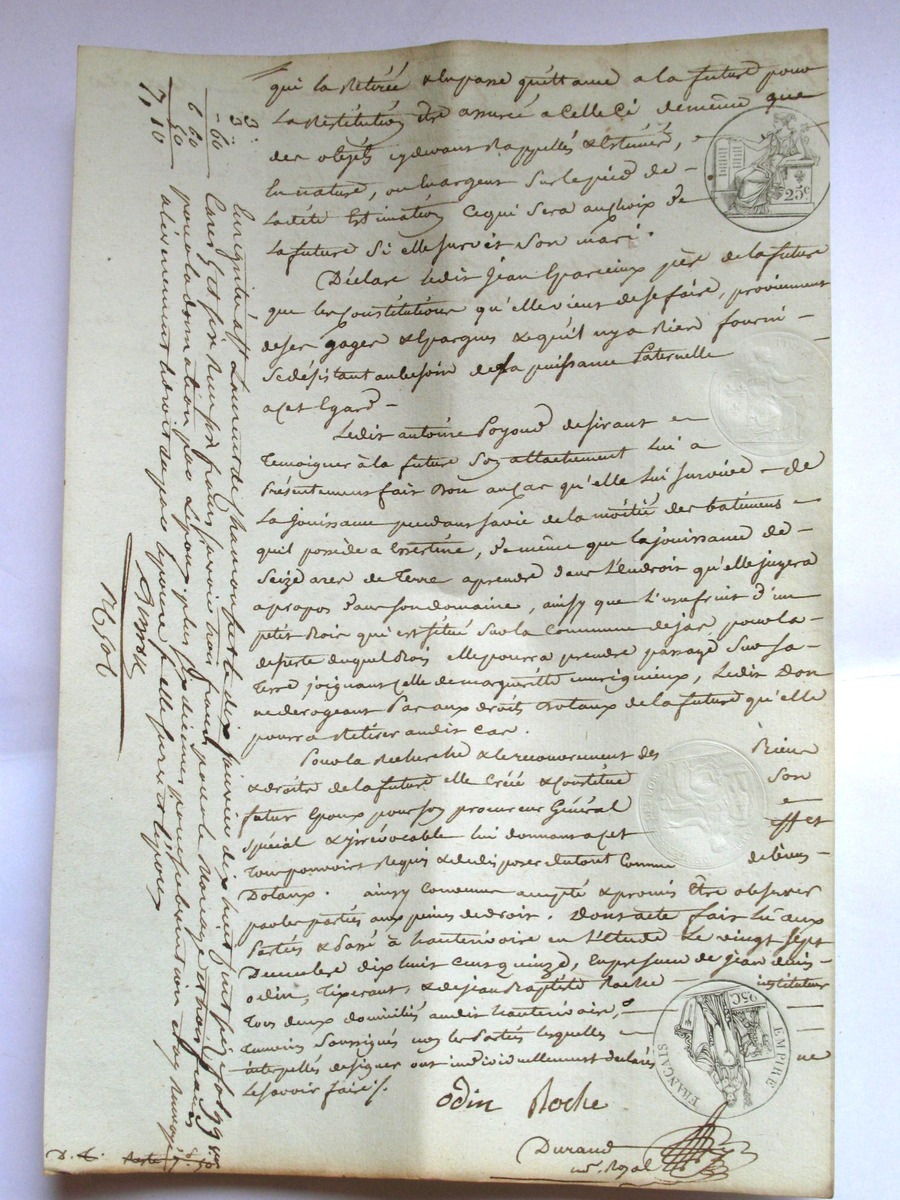 qui la retirée & en passe quittance a la future pour
la restitution être assurée a celle ci de même que
des objets cy devant rappellés & Estimés, 
En nature, ou En argent sur le pied de
la dite Estimation Ce qui sera au choix de
la future Si elle survit Son mari.
Déclare ledit Jean Eparcieux père de la future
que les Constitutions qu'elle vient de se faire, proviennent
de ses gages & Epargnes & qu'il n'y a Rien fourni
Se désistant au besoin de Sa puissance Paternelle
a cet Egard
Ledit antoine Poyond desirant
Temoigner à la future Son attachement Lui a
Présentement fait Don au Cas qu'elle Lui survive de
La Jouissance pendant sa vie de la moitié des batimens
qu'il possède a Essertine, de même que la jouissance de
Seize ares de Terre a prendre dans l'Endroit qu'elle jugera
a propos dans son domaine, ainsy que L'usufruit d'un
petit Bois qui est situé Sur la Commune de jas pour la
deserte duquel Bois elle pourra prendre passage Sur la
Terre joignant Celle de marguerite murigneux, Ledit Don
ne derogeant Pas aux droits Dotaux de la future qu'elle
pourra Retirer audit cas.
Pour la Recherche & le recouvrement des Biens
& droits de la future elle Créé & Constitue Son
futur Epoux pour Son procureur Général
Spécial & irrévocable lui donnant a cet effet
Tous pouvoirs Requis & de disposer du tout Comme de biens
Dotaux. ainsy Convenu accepté & promis Être observer
par les parties aux peines de droit. Dont acte fait Lu aux
Parties & Passé à hauterivoire en L'étude Le vingt Sept
Decembre dix huit cent quinze, En presence de jean denis
odin, Tixerant, & de jean Baptiste Roche instituteur
Tous deux domiciliés audit hauterivoire,
Temoins Soussignés non les Parties lesquelles
interpellés de signer ont individuellement declarés ne
le Savoir faire.
odin Roche
Durand
no.re Royal
25c
EMPIRE FRANÇAIS
25C
Enregistré à St Laurent de Chamousset le dix janvier dix huit cent seize fol. 99
Cases 5 et 6 Reçu six francs savoir trois francs pour le Mariage et trois francs
pour la donation par L'epoux, plus
3
60
6 60
50
7, 10